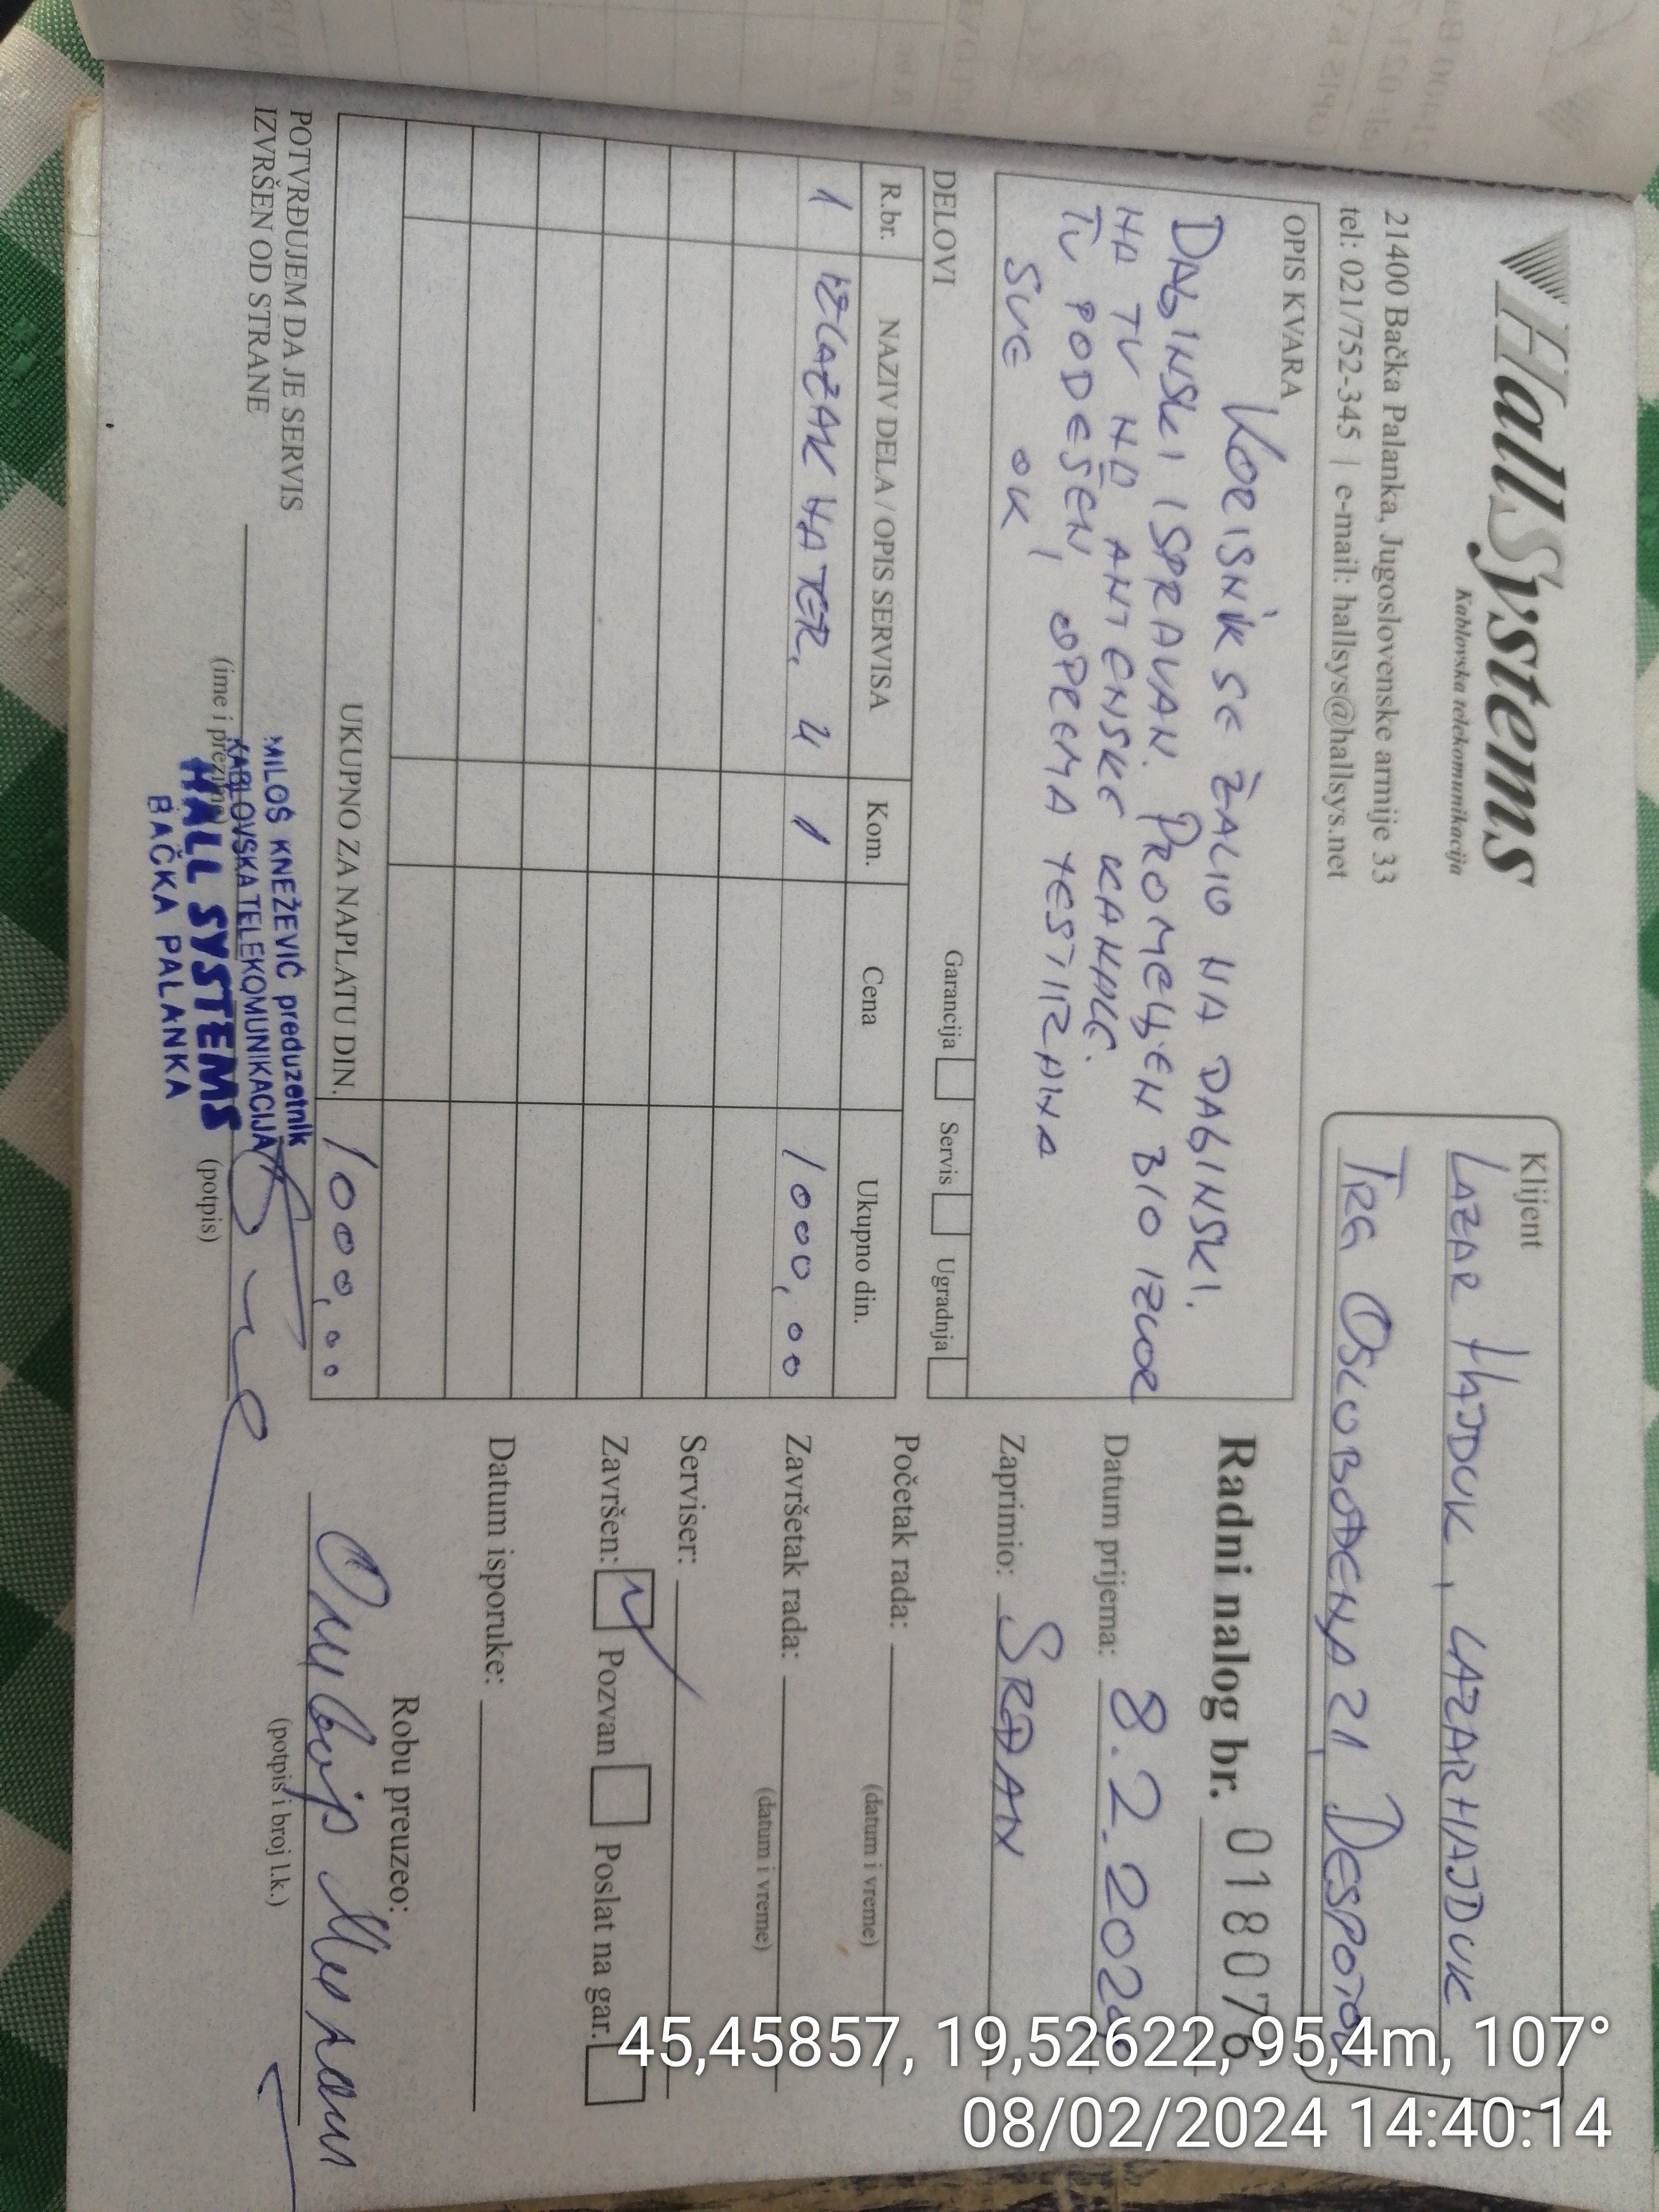 HallSystems
Kablovska telekomunikacija
21400 Bačka Palanka, Jugoslovenske armije 33
tel: 021/752-345 | e-mail: hallsys@hallsys.net
Klijent
LAZAR HAJDUK, LAZARHAJDUK
TRG OSLOBOĐENJA 21, DESPOTOV
OPIS KVARA
KORISNIK SE ŽALIO NA DALJINSKI.
DALJINSKI ISPRAVAN. PROMENJEN BIO IZVOR
NA TV NA ANTENSKE KANALE.
TV PODEŠEN, OPREMA TESTIRANA
SVE OK
Radni nalog br. 018076
Datum prijema: 8.2.2024
Zaprimio: SRĐAN
Početak rada:
(datum i vreme)
Završetak rada:
(datum i vreme)
Serviser:
Završen: Pozvan Poslat na gar.
Datum isporuke:
DELOVI Garancija Servis Ugradnja
R.br. NAZIV DELA / OPIS SERVISA Kom. Cena Ukupno din.
1 IZLAZAK NA TER. U 1 1000,00
UKUPNO ZA NAPLATU DIN. 1000,00
POTVRĐUJEM DA JE SERVIS
IZVRŠEN OD STRANE
(ime i prezime) (potpis)
MILOŠ KNEŽEVIĆ preduzetnik
KABLOVSKA TELEKOMUNIKACIJA
HALL SYSTEMS
BAČKA PALANKA
Robu preuzeo:
(potpis i broj l.k.)
45,45857, 19,52622, 95,4m, 107°
08/02/2024 14:40:14